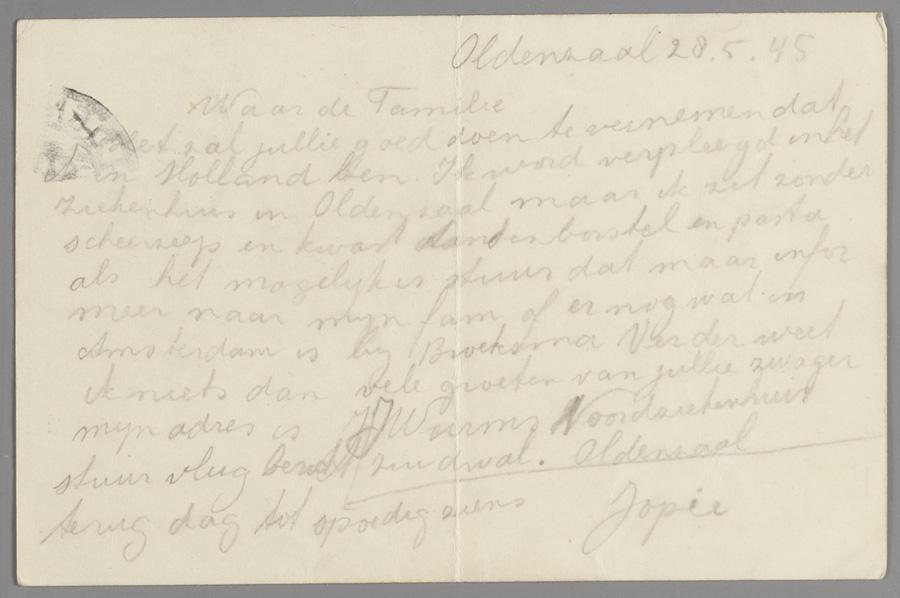 Oldenzaal 28.5.45
Waarde Familie
Het zal jullie goed doen te vernemen dat
in Holland ben. Ik word verpleegd in het
Ziekenhuis in Oldenzaal maar ik zit zonder
scheerzeep en kwast tandenborstel en pasta
als het mogelijk is stuur dat maar infor
meer naar mijn fam of er nog wat in
Amsterdam is by Broeksma Verder weet
ik niets dan vele groeten van jullie zwager
mijn adres is Wurms Noordziekenhuis
stuur vlug bericht zuidwal. Oldenzaal
terug dag tot spoedig ziens Jopie